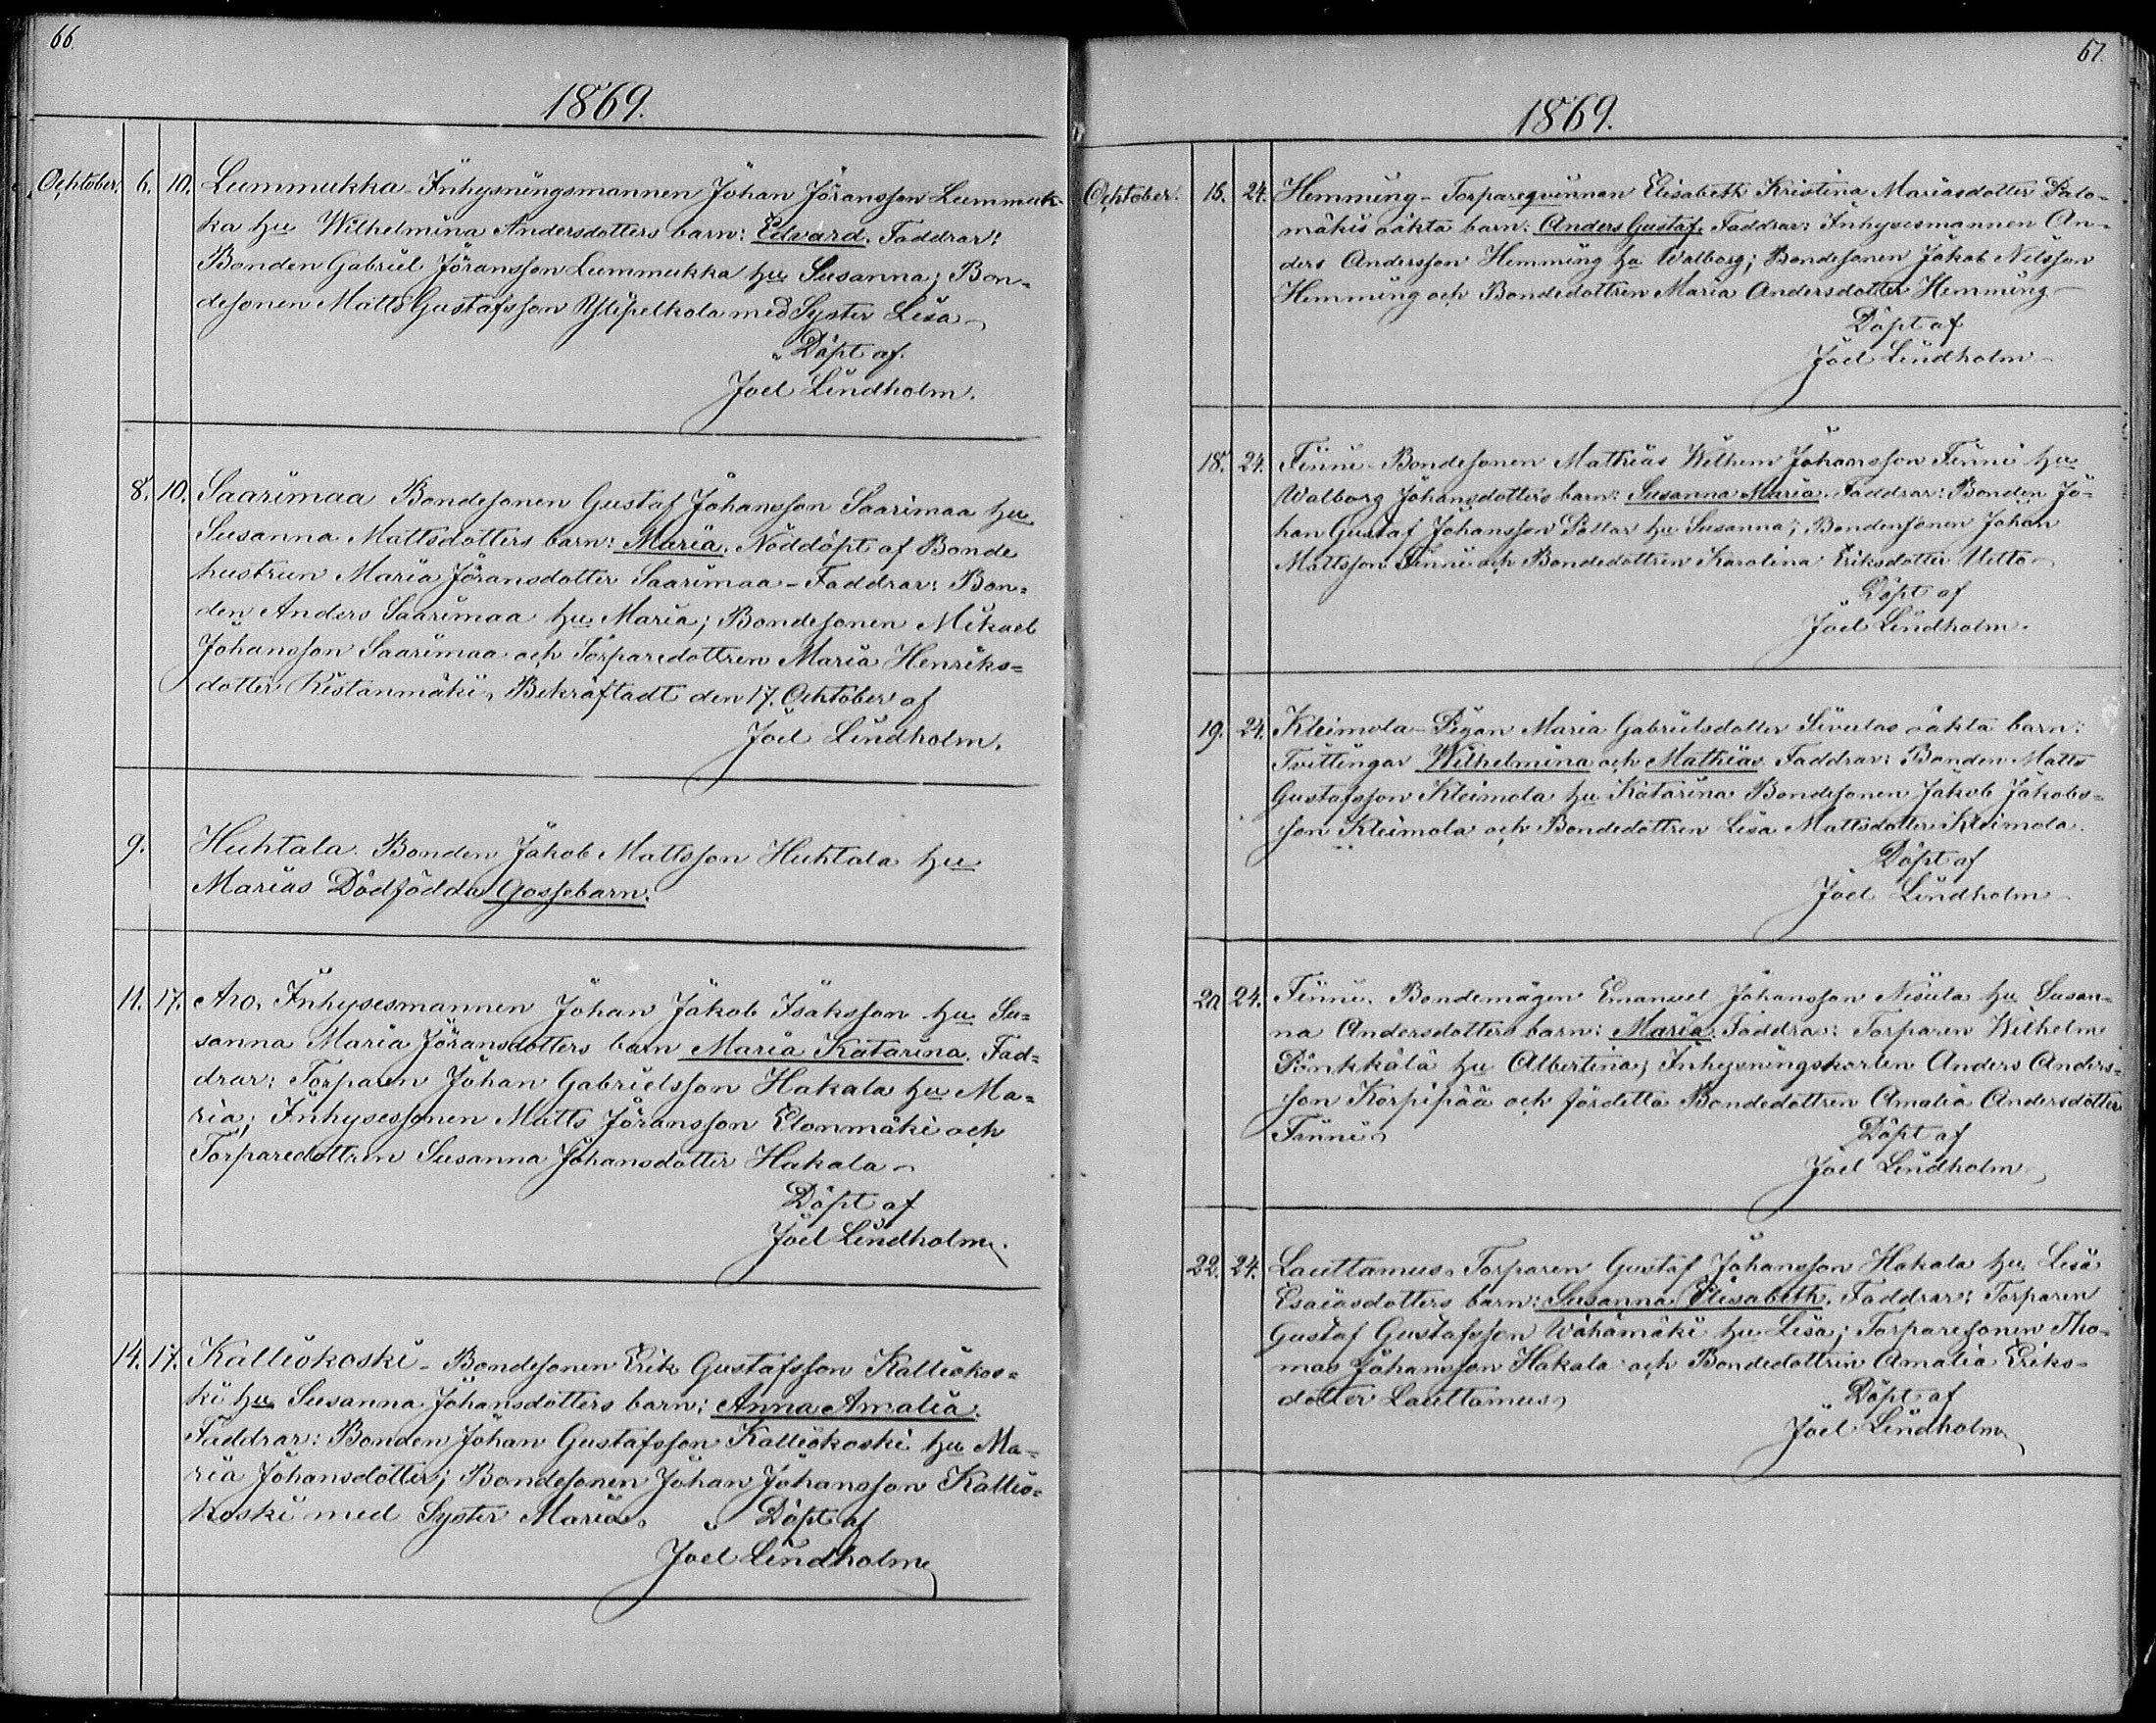 66.
1869.
Ochtober. 6. 10. Lummukka - Inhysningsmannen Johan Jöransson Lummuk-
ka hu Wilhelmina Andersdotters barn: Edvard. Faddrar:
Bonden Gabriel Jöransson Lummukka hu Susanna; Bon=
desonen Matts Gustafsson med Syster Lisa
Döpt af.
Joel Lindholm.
8. 10. Saarimaa Bondesonen Gustaf Johansson Saarimaa hu
Susanna Mattsdotters barn: Maria. Nöddöpt af Bonde
hustrun Maria Jöransdotter Saarimaa - Faddrar: Bon=
den Anders Saarimaa hu Maria; Bondesonen Mikael
Johansson Saarimaa och Torparedottren Maria Henriks=
dotter Ristanmäki, Bekräftadt den 17. Ochtober af
Joel Lindholm.
9. Huhtala. Bonden Jakob Mattsson Huhtala hu
Marias Dödfödda Gossebarn.
11. 17. Aro, Inhysesmannen Johan Jakob Isaksson hu Su=
sanna Maria Jöransdotters barn Maria Katarina. Fad=
drar: Torparen Johan Gabrielsson Hakala hu Ma=
ria; Inhysessonen Matts Jöransson Elonmäki och
Torparedottren Susanna Johansdotter Hakala
Döpt af
Joel Lindholm.
14. 17. Kalliokoski - Bondesonen Erik Gustafsson Kalliokos=
ki hu Susanna Johansdotters barn: Anna Amalia.
Faddrar: Bonden Johan Gustafsson Kalliokoski hu Ma=
ria Johansdotter; Bondesonen Johan Johansson Kallio=
koski med Syster Maria. Döpt af
Joel Lindholm
67.
1869.
Ochtober. 16. 24. Hemming - Torpareqvinnan Elisabeth Kristina Mariasdotter Palo=
mäkis oäkta barn: Anders Gustaf. Faddrar: Inhysesmannen An=
ders Andersson Hemming hu Walborg; Bondesonen Jakob Nilsson
Hemming och Bondedottren Maria Andersdotter Hemming
Döpt af
Joel Lindholm
18. 24. Finni - Bondesonen Mathias Wilhem Johansson Finni hu
Walborg Johansdotters barn: Susanna Maria. Faddrar: Bonden Jo=
han Gustaf Johansson Pollar hu Susanna; Bondensonen Johan
Mattsson Finni och Bondedottren Karolina Eriksdotter Uitto
Döpt af
Joel Lindholm.
19. 24. Kleimola - Pigan Maria Gabrielsdotter Sivulas oäkta barn:
Tvillingar Wilhelmina och Mathias. Faddrar: Bonden Matts
Gustafsson Kleimola hu Katarina Bondesonen Jakob Jakobs=
son Kleimola och Bondedottren Lisa Mattsdotter Kleimola.
Döpt af
Joel Lindholm
20. 24. Finni. Bondemågen Emanuel Johansson Nisula hu Susan=
na Andersdotters barn: Maria. Faddrar: Torparen Wilhelm
Pönkkälä hu Albertina; Inhysningskarlen Anders Anders=
son Korpipää och fördetta Bondedottren Amalia Andersdotter
Finni Döpt af
Joel Lindholm
22. 24. Lauttamus. Torparen Gustaf Johansson Hakala hu Lisa
Esaiasdotters barn: Susanna Elisabeth. Faddrar: Torparen
Gustaf Gustafsson Wähämäki hu Lisa; Torparesonen Tho=
mas Johansson Hakala och Bondedottren Amalia Eriks=
dotter Lauttamus Döpt af
Joel Lindholm